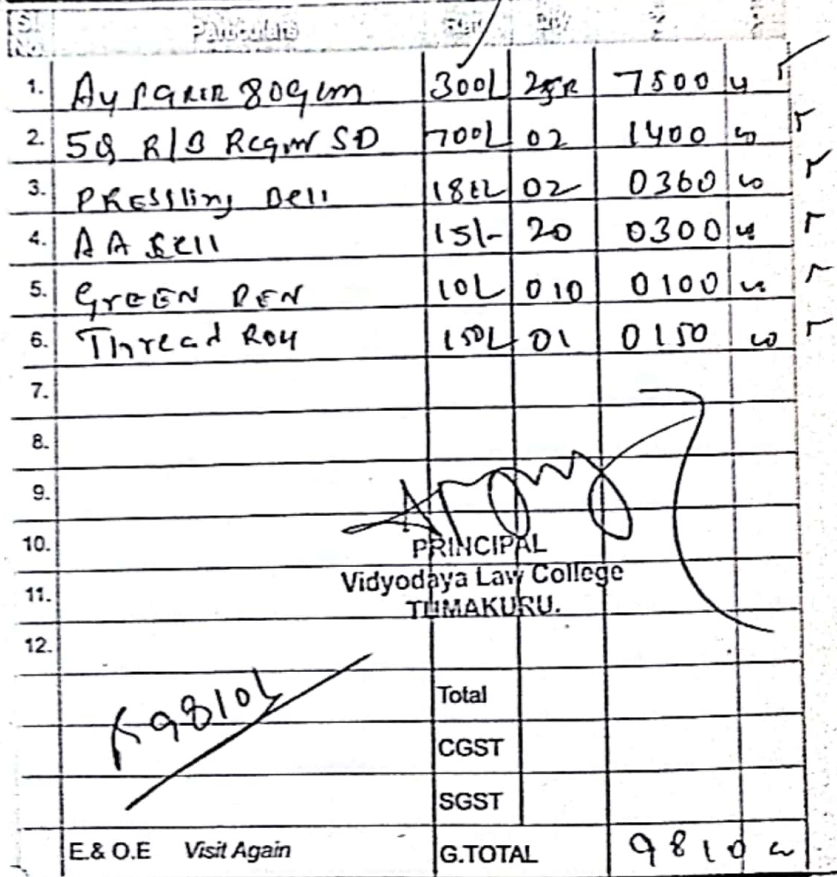 Sl. No. Particulars Rate Qty
1. A4 PAPER 80 gsm 300/- 25R 7500 00
2. 5Q R/B Regis SD 700/- 02 1400 00
3. 180/- 02 0360 00
4. AA Cell 15/- 20 0300 00
5. GrEEN PEN 10/- 010 0100 00
6. Thread Roll 150/- 01 0150 00
7.
8.
9.
10. PRINCIPAL
Vidyodaya Law College
11.
TUMAKURU.
12.
9810/-
Total
CGST
SGST
E.& O.E Visit Again G.TOTAL 9810 00